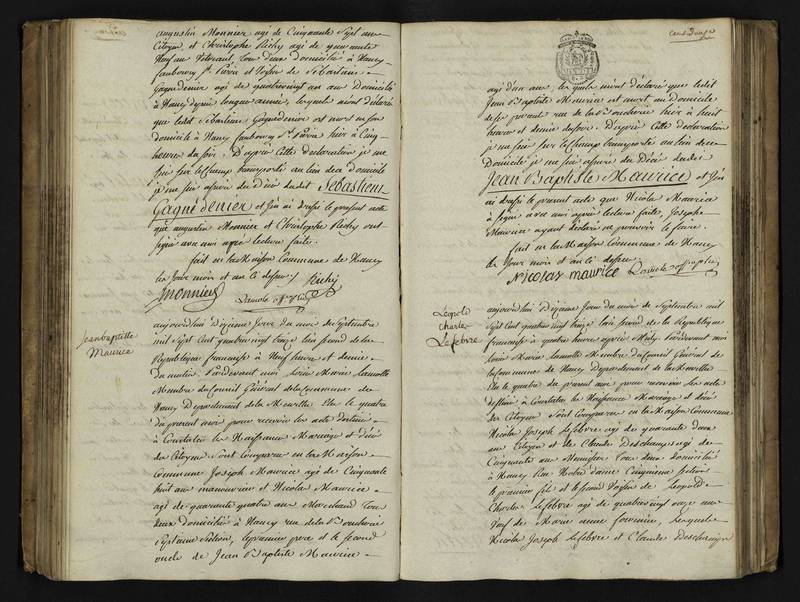 augustin Monnier agé de Cinquante Sept ans
Citoyen, et Christophe Richy agé de quarante
Neuf ans Vétérant, tous deux domiciliés à Nancy
faubourg St. Pierre et Voisin de Sébastien
Gagnédenier agé de quatrevingt un ans Domicilié
à Nancy depuis longues années, lesquels m'ont déclaré
que ledit Sébastien Gagnédenier est mort en son
domicile à Nancy faubourg St. Pierre hier à Cinq
heures du soir. D'après Cette déclaration je me
suis sur le Champ transporté au lieu de ce domicile
je me suis assuré du Décès dudit Sébastien
Gagnédenier et j'en ai dressé le présent acte
que augustin Monnier et Christophe Richy ont
signé avec moi après lecture faite.
fait en la Maison Commune de Nancy
les Jour mois et an ci dessus /. Richy
Monnier
Jeanbaptiste
Maurice
aujourd'hui Dixieme Jour du mois de Septembre
mil Sept Cent quatre vingt treize l'an second de la
République française à Neuf heures et demie
du matin. Pardevant moi Louis Marie Lamotte
Membre du Conseil Général de la Commune de
Nancy Département de la Meurthe Elu le quatre
du présent mois pour recevoir les actes destinés
à Constater les Naissances Mariages et décès
des Citoyens Sont Comparus en la Maison
Commune Joseph Maurice agé de Cinquante
huit ans manouvrier et Nicolas Maurice
agé de quarante quatre ans Marchand Tous
deux domiciliés à Nancy rue de la Boucherie
Septieme Section, le premier pere et le second
oncle de Jean Baptiste Maurice
cent douze
agé d'un an, lesquels m'ont déclaré que ledit
Jean Baptiste Maurice est mort au Domicile
de son parent rue de la Boucherie hier à huit
heures et demie du soir. D'après Cette déclaration
je me suis sur le Champ transporté au lieu de ce
Domicile je me suis assuré du Décès dudit
Jean Baptiste Maurice et j'en
ai dressé le présent acte que Nicolas Maurice
a signé avec moi après lecture faite, Joseph
Maurice ayant déclaré ne pouvoir le faire.
fait en la Maison Commune de Nancy
les Jour mois et an ci dessus
Nicolas maurice
Léopold
Charles
Lefebvre
aujourd'hui Dixieme Jour du mois de Septembre mil
Sept Cent quatre vingt treize l'an second de la République
française à quatre heures après Midy Pardevant moi
Louis Marie Lamotte Membre du Conseil Général de
la Commune de Nancy Département de la Meurthe
Elu le quatre du présent mois pour recevoir les actes
destinés à Constater les Naissances Mariages et décès
des Citoyens Sont Comparus en la Maison Commune
Nicolas Joseph Lefebvre agé de quarante deux
ans Citoyen et Claude Deschamps agé de
Cinquante ans Tous deux domiciliés
à Nancy Rue Notre Dame Cinquieme Section
le premier fils et le second Voisin de Léopold
Charles Lefebvre agé de quatrevingt onze ans
Veuf de Marie anne fournier, Lesquels
Nicolas Joseph Lefebvre et Claude Deschamps